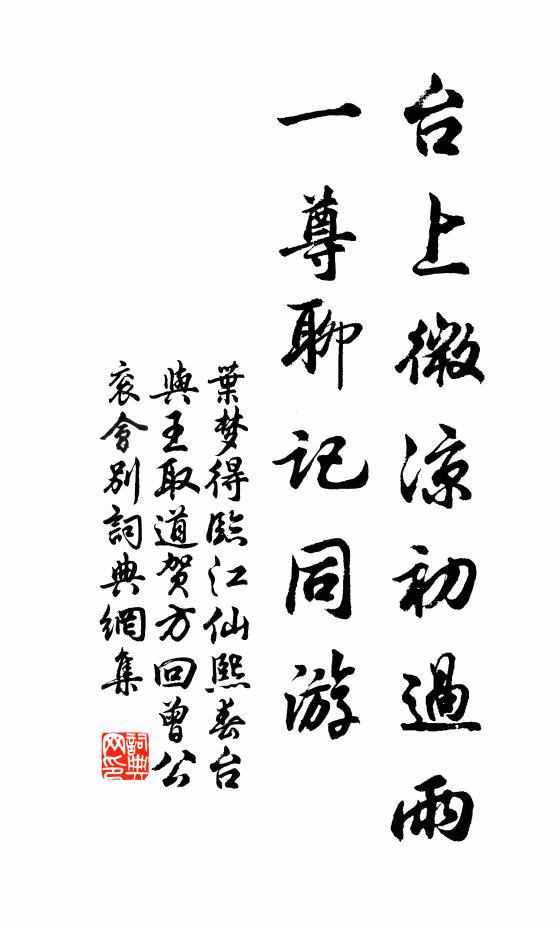 台上微涼初過雨
一尊聊记同游
葉梦得臨江仙熙春台
與王取道贺方回曾公
衮會别詞典網集
詞典网印